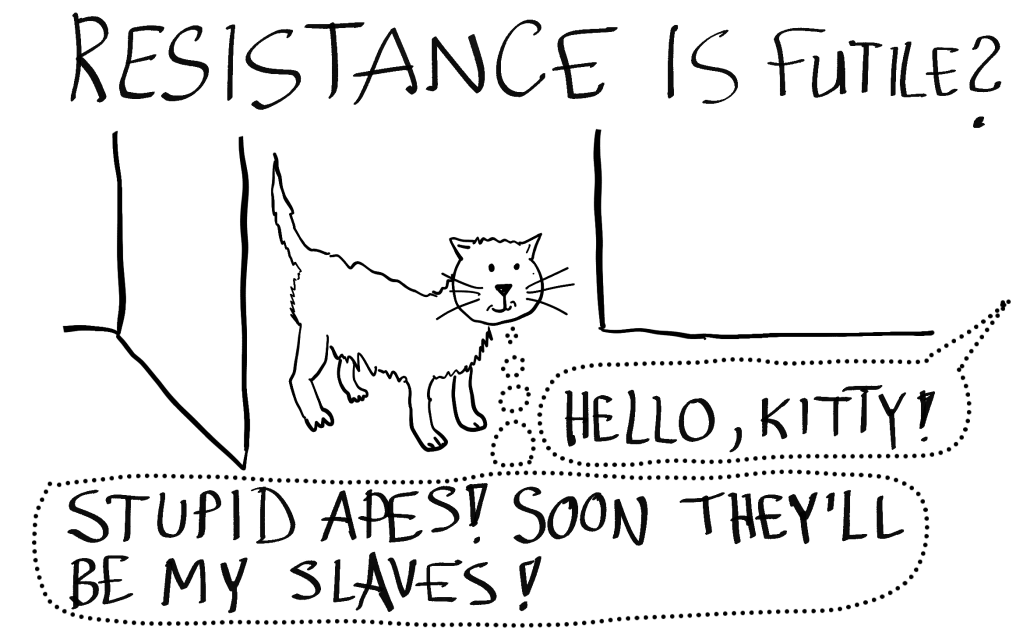 RESISTANCE IS FUTILE?
HELLO, KITTY!
STUPID APES! SOON THEY'LL
BE MY SLAVES!